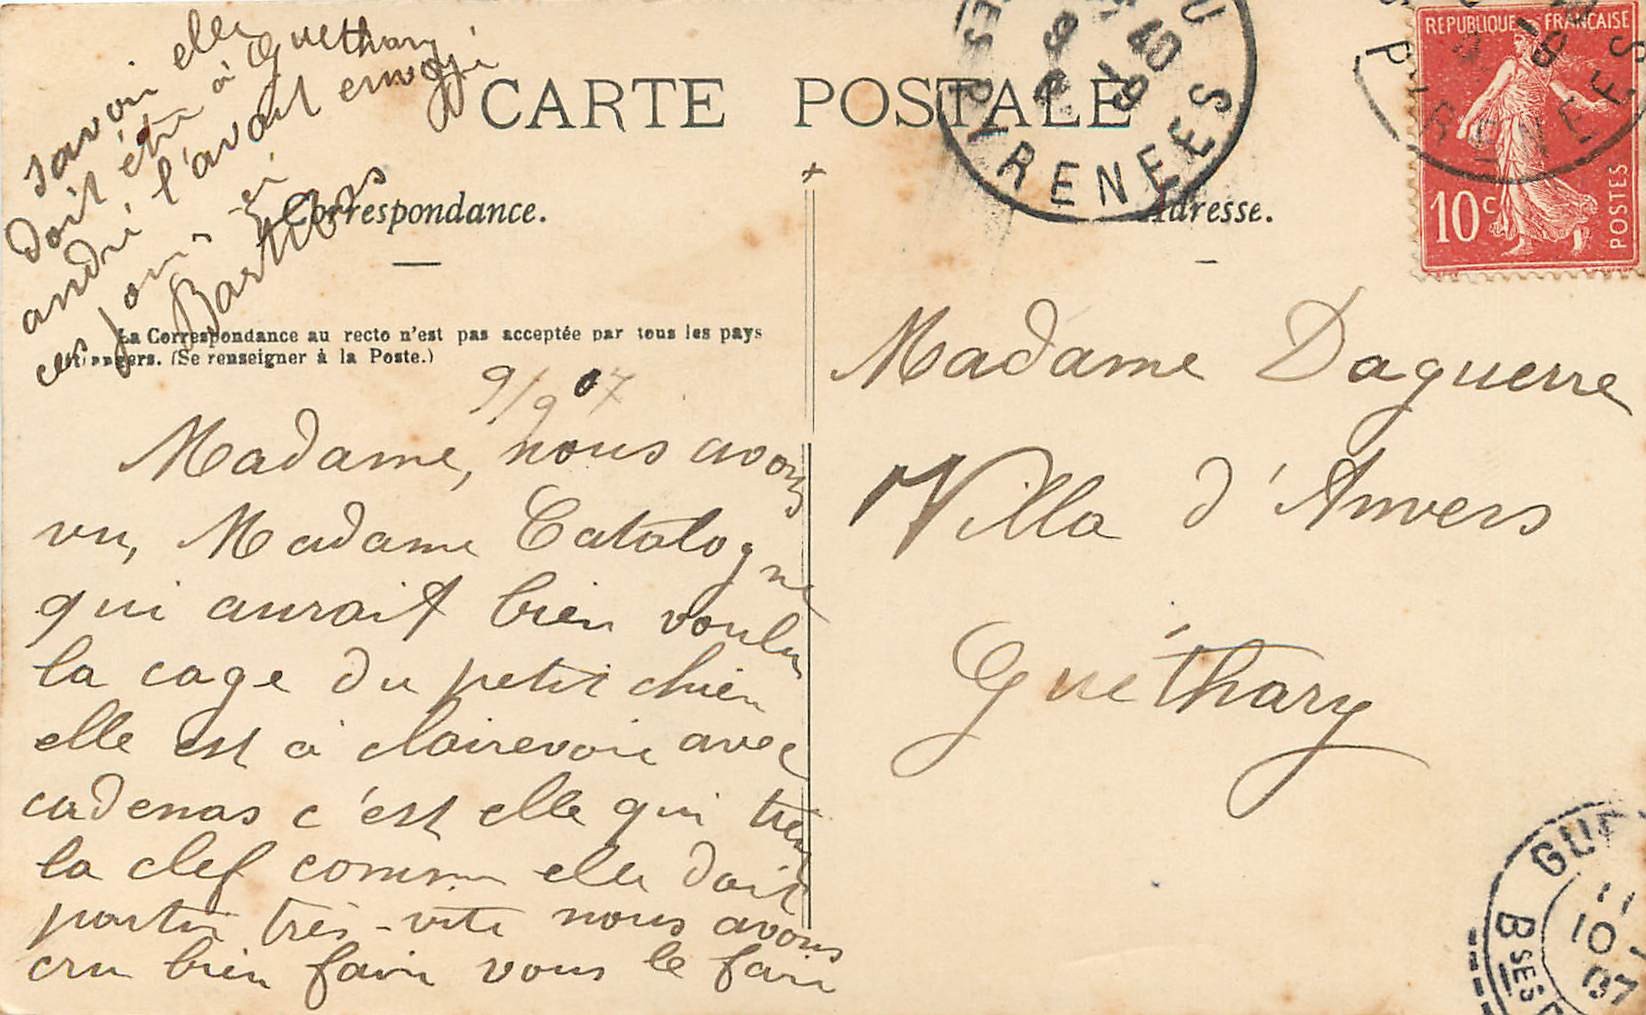 CARTE POSTALE
Correspondance.
Adresse.
La Correspondance au recto n'est pas acceptée par tous les pays
(Se renseigner à la Poste.)
9/9 07
Madame, nous avons
vu, Madame Catalogne
qui aurait bien voulu
la cage du petit chien
elle est à clairevoie avec
cadenas c'est elle qui
la clef comme elle doit
partir très-vite nous avons
cru bien faire vous le faire
savoir elle
doit être à Guethary
andré l'avait envoyé
ces jours-ci
Madame Daguerre
Villa d'Anvers
Guéthary
REPUBLIQUE FRANÇAISE
10c
POSTES
PYRENEES
PYRENEES
11
10
07
BSES